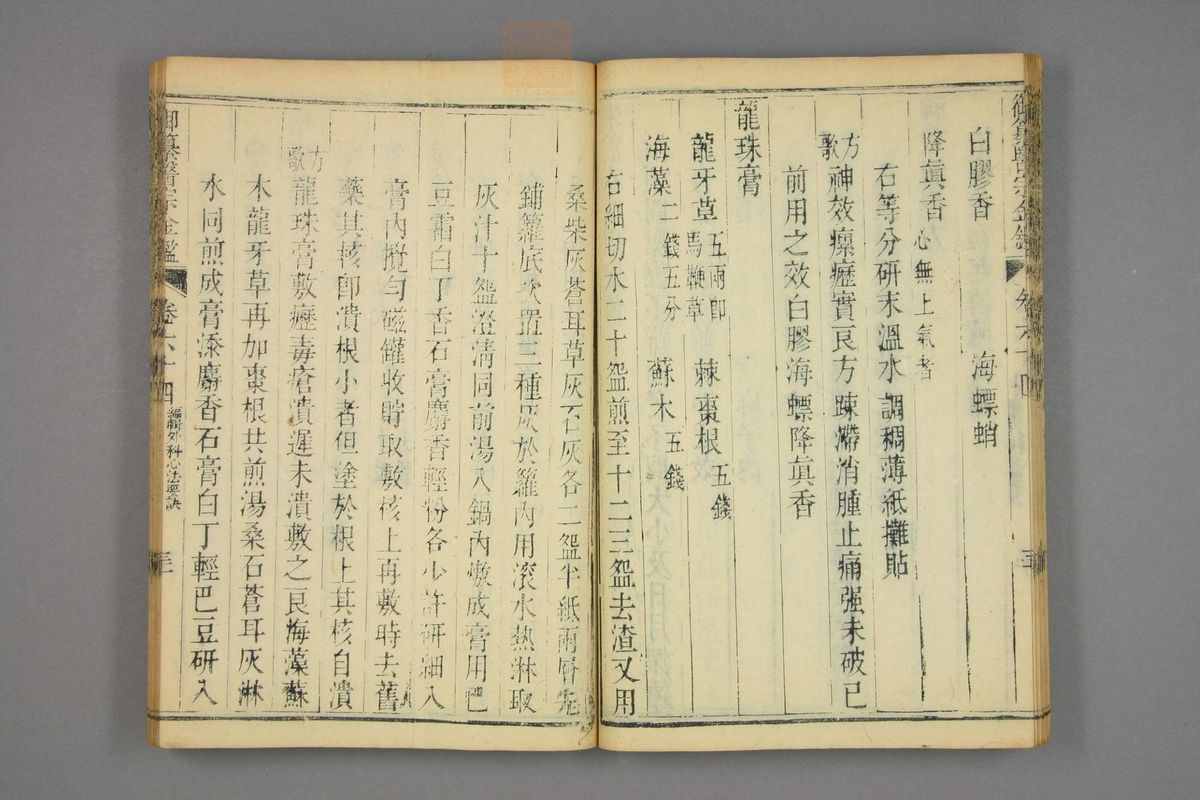 御纂醫宗金鑑 卷六十四
白膠香 海螵蛸
降眞香 心無土氣者
右等分研末溫水調稠薄紙攤貼
方歌 神效瘰癧實良方踈滯消腫止痛强未破已
前用之效白膠海螵降眞香
龍珠膏
龍牙草 五兩卽馬鞭草 棘棗根 五錢
海藻 二錢五分 蘇木 五錢
右細切水二十盌煎至十二三盌去渣又用
桑柴灰蒼耳草灰石灰各二盌半紙兩層先
鋪籮底次置三種灰於籮內用滾水熱淋取
灰汁十盌澄清同前湯入鍋內熬成膏用巴
豆霜白丁香石膏麝香輕粉各少許研細入
膏內攪勻磁罐收貯取敷核上再敷時去舊
藥其核卽潰根小者但塗於根上其核自潰
方歌 龍珠膏敷癧毒瘡潰遲未潰敷之良海藻蘇
木龍牙草再加棗根共煎湯桑石蒼耳灰淋
水同煎成膏添麝香石膏白丁輕巴豆研入
御纂醫宗金鑑 卷六十四 編輯外科心法要訣